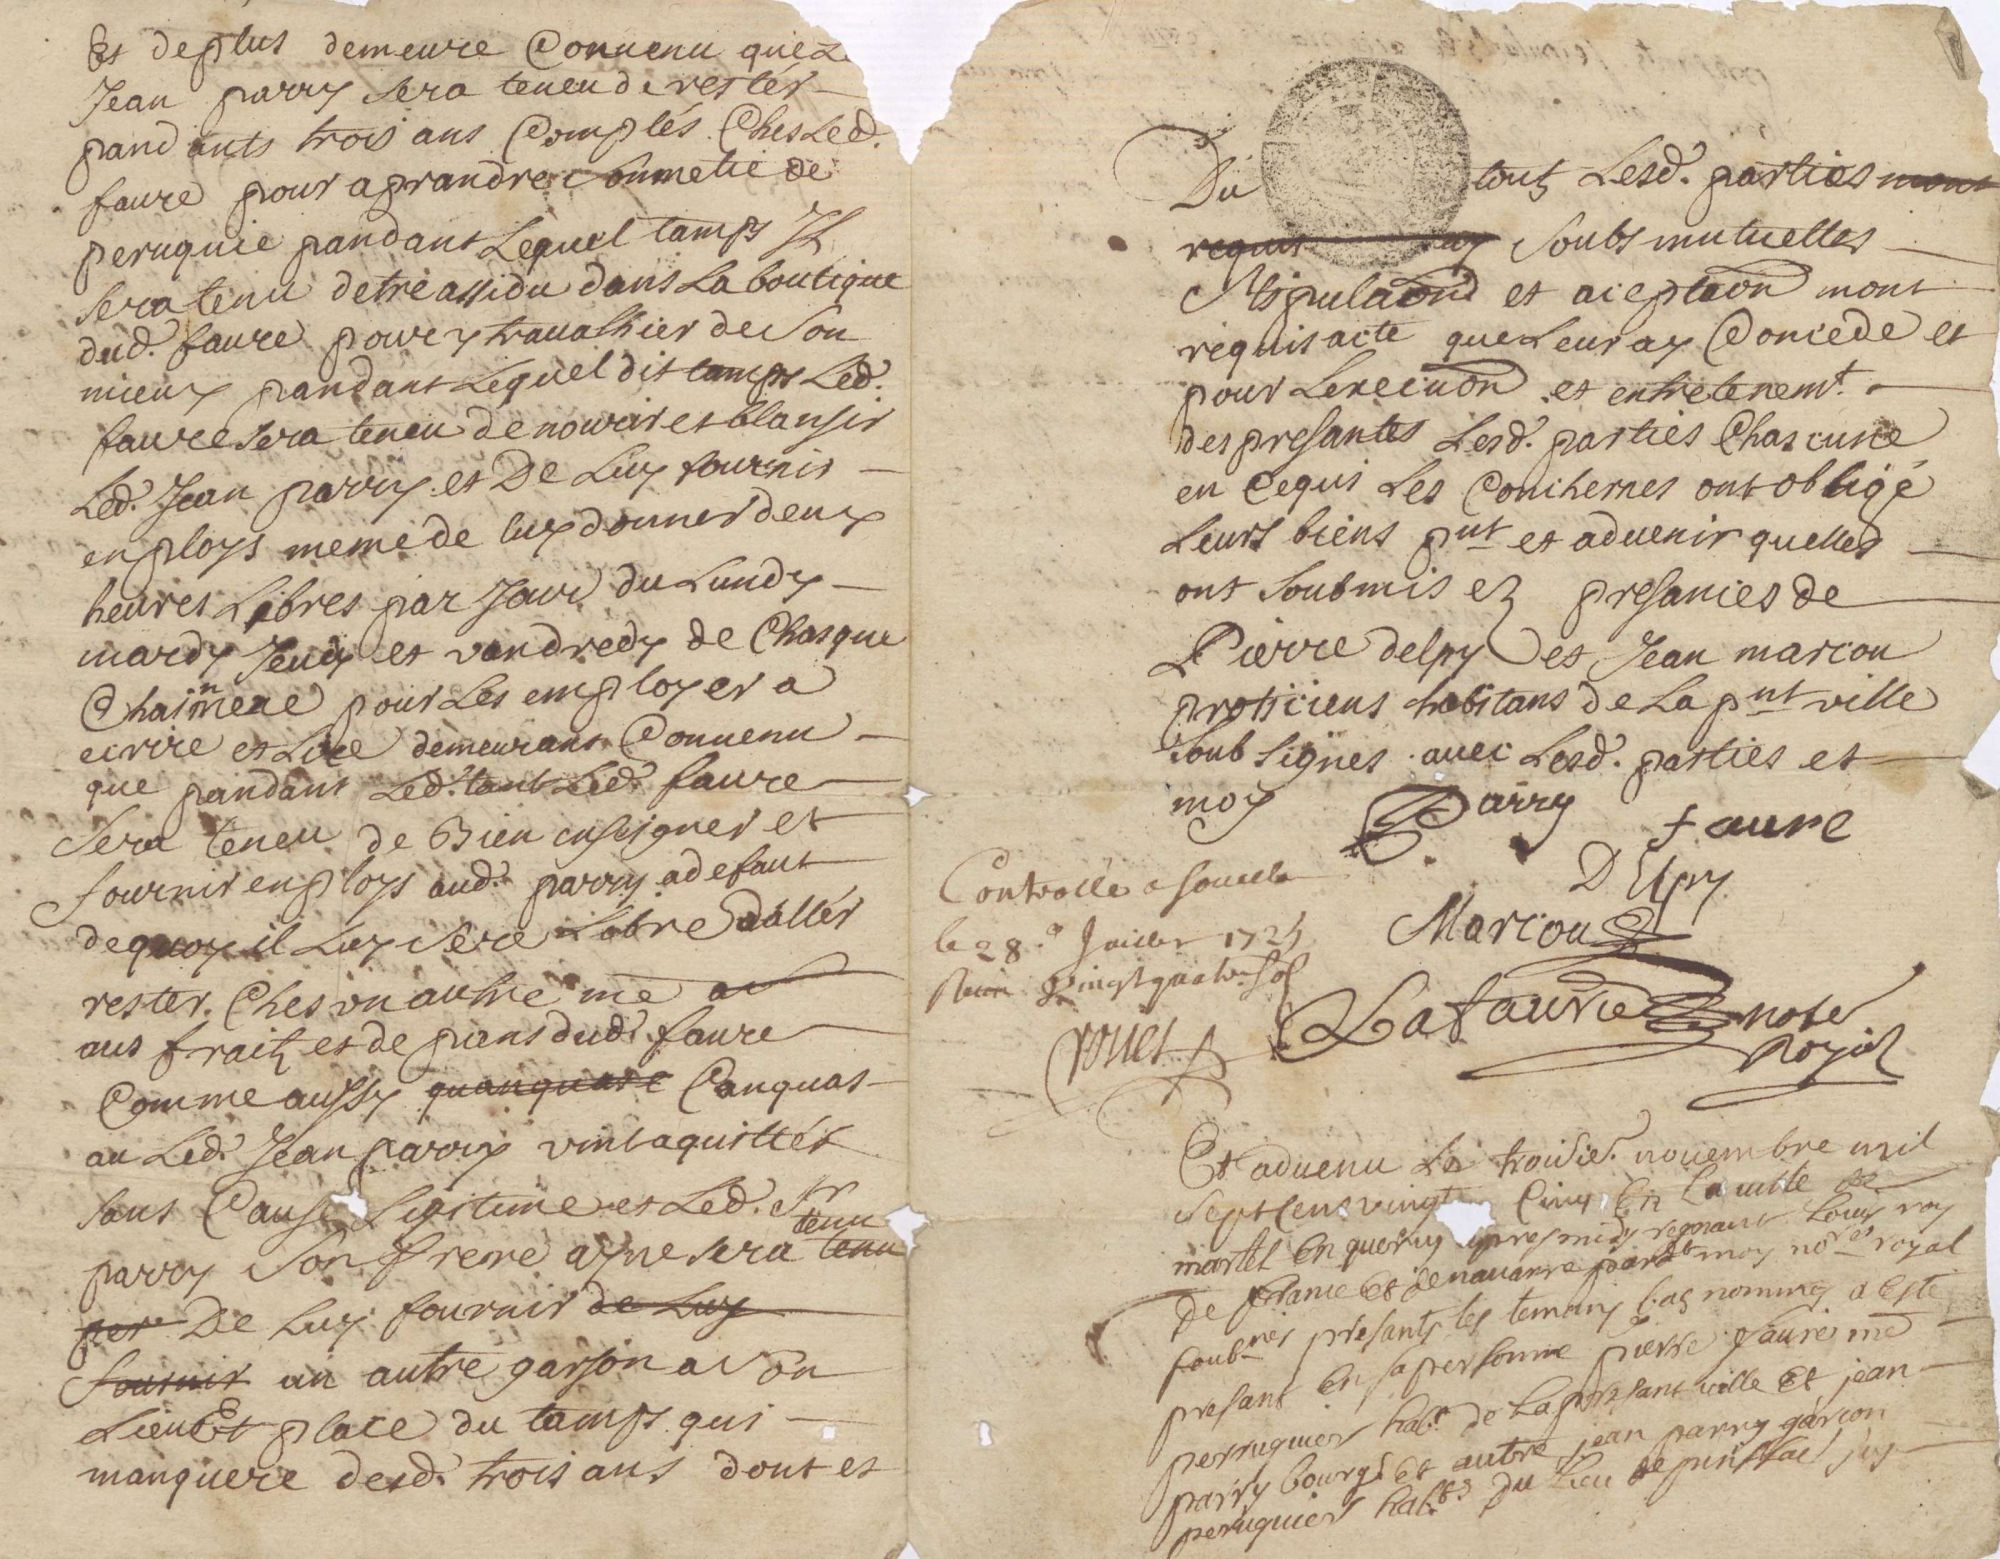 Et deplus demeure Convenu que L
Jean parry sera teneu de rester
pandants trois ans Complés Ches Led.
faure pour aprandre Son metie de
peruquie pandant Lequel tamps Il
sera tenu detre assidu dans La boutique
dud. faure pour y travalhier de Son
mieux pandant Lequel dit tamps Led.
faure sera teneu de nourir et blansir
Led. Jean parry et De Luy fournir
enploys meme de luy donner deux
heures Libres par Jour du Lundy
mardy Jeudy et vandredy de Chasque
Chaimene pour Les employer a
ecrire et Lire demeurant Convenu
que pandant Led. tant Led. faure
Sera teneu de Bien enseigner et
fournir enploys aud. parry adefaut
dequoy il Luy sere Libre daller
rester Ches un autre me a
aus fraitz et de pans dud. faure
Comme aussy quanquare Canquas
au Led. Jean parry vint aquitter
sans Cause Legitime et Led. Sr
parry Son frere ayne sera tenu tenu
per De Luy fournir de Luy
fournir un autre garson a Son
Lieu Et place du tamps qui
manquere desd. trois ans dont et
Du tout Lesd. parties mont
requis soubs mutuelles
Stipulaons et aceptaon mont
requis acte que Leur ay Concede et
pour Lexecuon et entretenemt.
des presantes Lesd. parties Chascune
en Cequi Les Conchernes ont obligé
Leurs biens pnt et advenir quelles
ont Soubmis ez presances de
Pierre delpy et Jean marcou
praticiens habitans de La pnt ville
Soub Signes avec Lesd. parties et
moy Parry
faure
DElpy
Marcou
Lafaurie note
Royal
Controllé a
le 28e Juillet 172
Recu vingt quatre sols
Et advenu Le troisie. novembre mil
sept Cens vingt Cinq En La ville de
martel En quercy apres midy regnant Louis roy
De france et de navarre pardt moy nore royal
soub.nes presants les temoins bas nommes a Este
presant En sa personne pierre faure me
perruquier habt. de La presant ville Et jean
parry bourgs. et autre jean parry garcon
peruquier habts. Du Lieu de